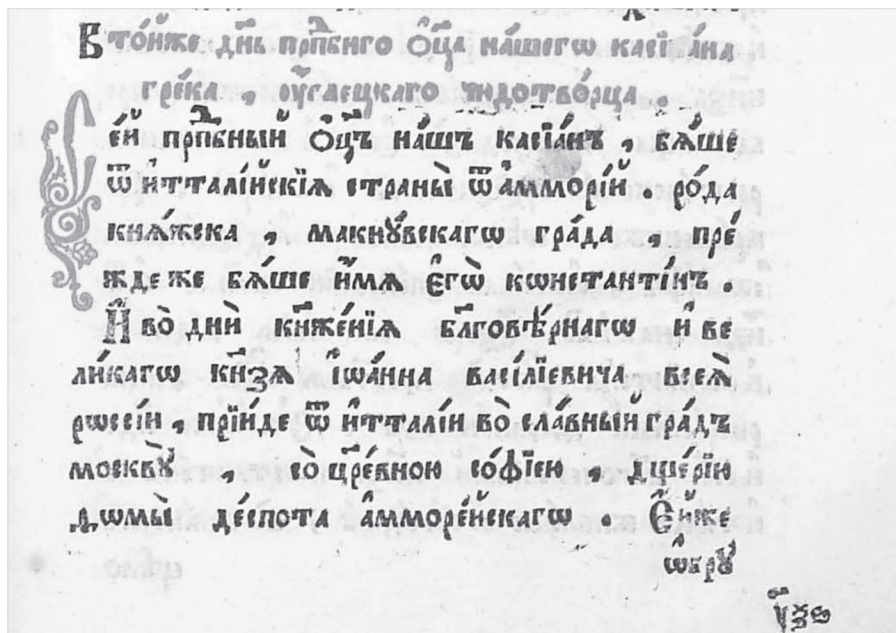 В то́йже дн҃ь прпⷣбнаго ѻ҆ц҃а на́шегѡ касїа́на
гре́ка , ᲂу҆гле́цкаго чюдотво́рца .
Се́й прпⷣбный ѻ҆ц҃ъ на́шъ касїа́нъ , бѧ́ше
ѿ и҆тталі́йскїѧ страны̀ ѿ а҆ммори́й . ро́да
кнѧ́жска , макнꙋ́вскагѡ гра́да , пре́
жде же бѧ́ше и҆́мѧ є҆гѡ̀ кѡнстанті́нъ .
И҆ во дни̑ кнже́нїѧ блгⷭ҇овѣ́рнагѡ и҆ ве
ли́кагѡ кнѧ́зѧ і҆ѡа́нна васі́лїевича всеѧ̀
рѡссі́и , прїи́де ѿ и҆ттали́и во сла́вный гра́дъ
москвꙋ̀ , со цр҃е́вною софі́ею , дще́рїю
ѳѡмы̀ де́спота а҆мморе́йскагѡ . Є҆́йже
ѡ҆брꙋ